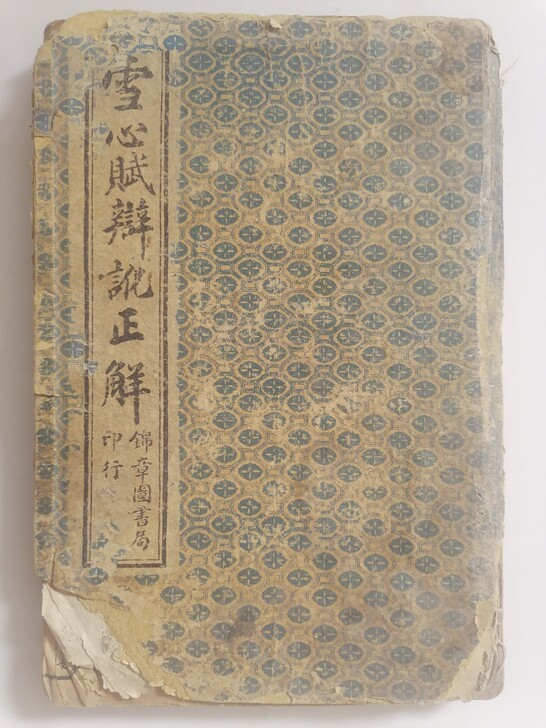 雪心賦辯訛正解
錦章圖書局
印行